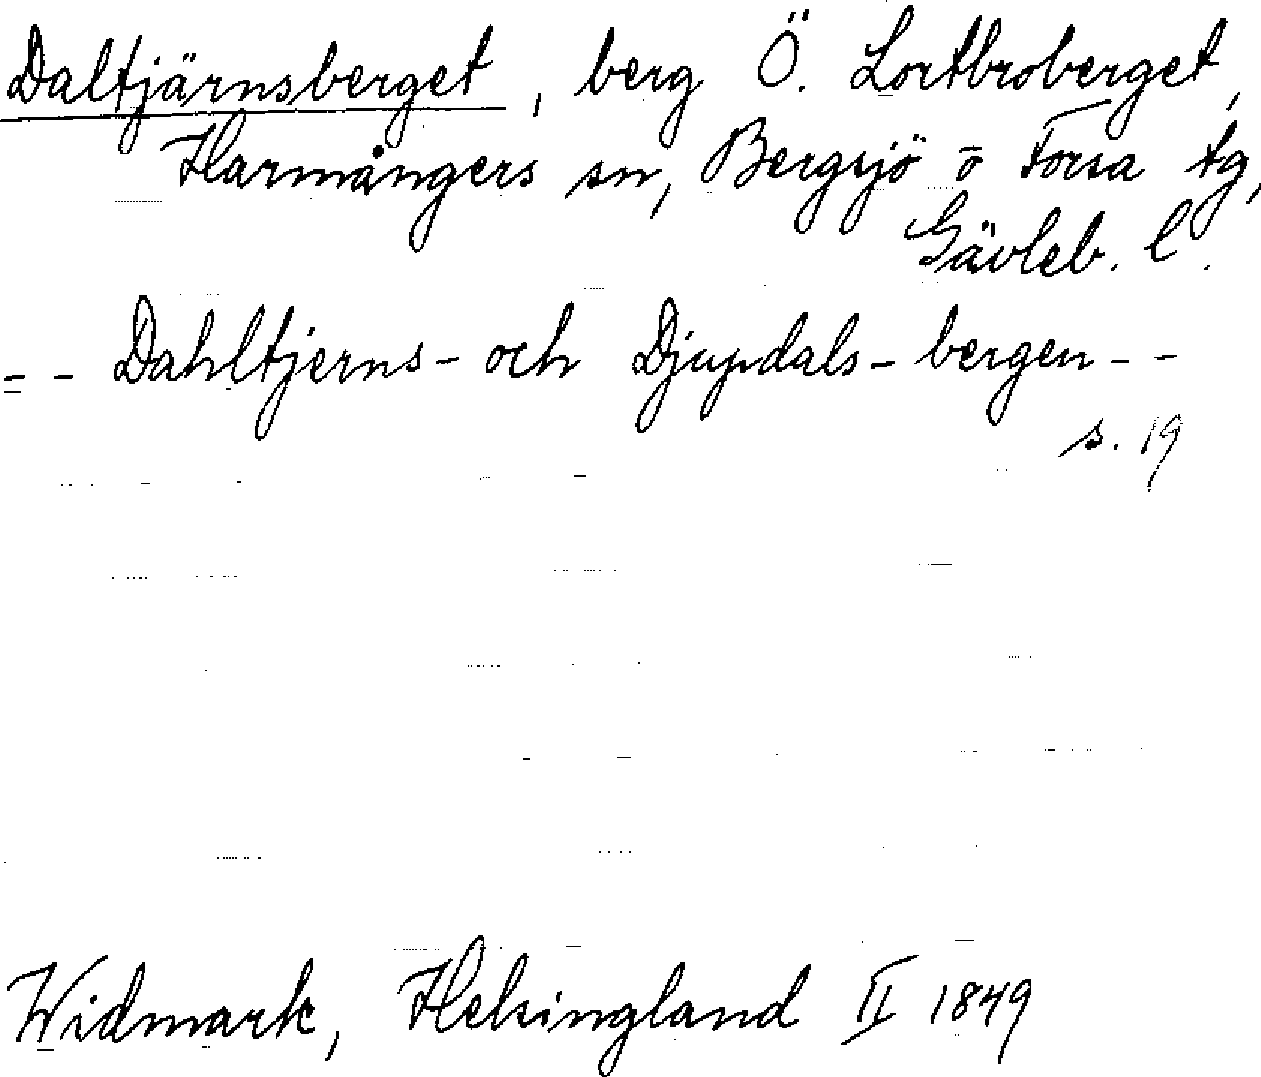 Daltjärnsberget, berg Ö. Lortbroberget,
Harmångers sn, Bergsjö o Forsa tg,
Gävleb. l.
- - Dahltjerns- och Djupdals-bergen - -
s. 19
Widmark, Helsingland II 1849